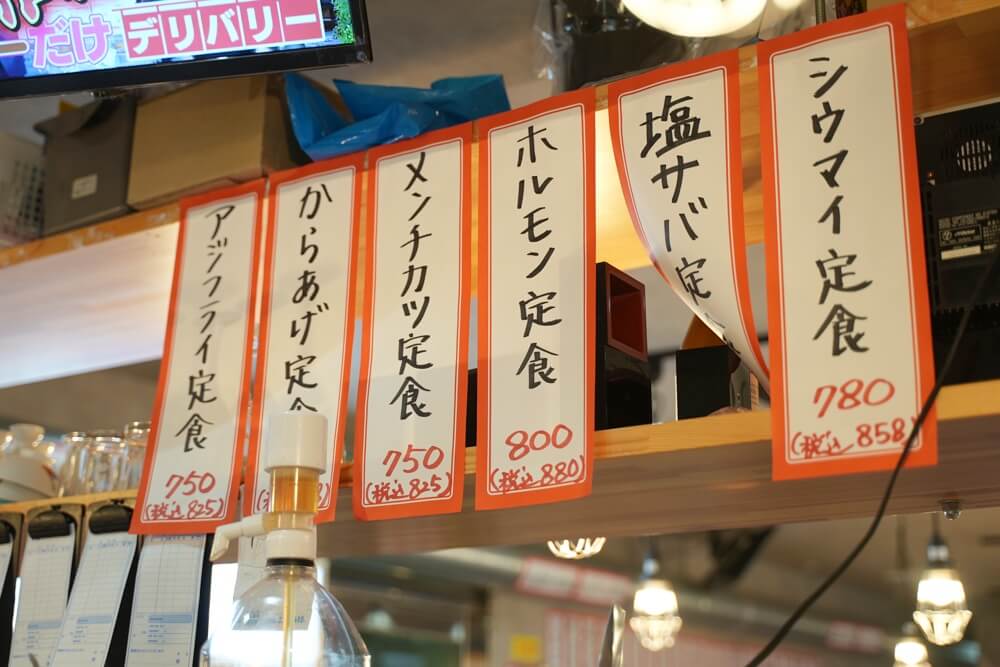 だけ デリバリー
アジフライ定食
750
(税込825)
からあげ定
メンチカツ定食
750
(税込825)
ホルモン定食
800
(税込880)
塩サバ定
シウマイ定食
780
(税込858)